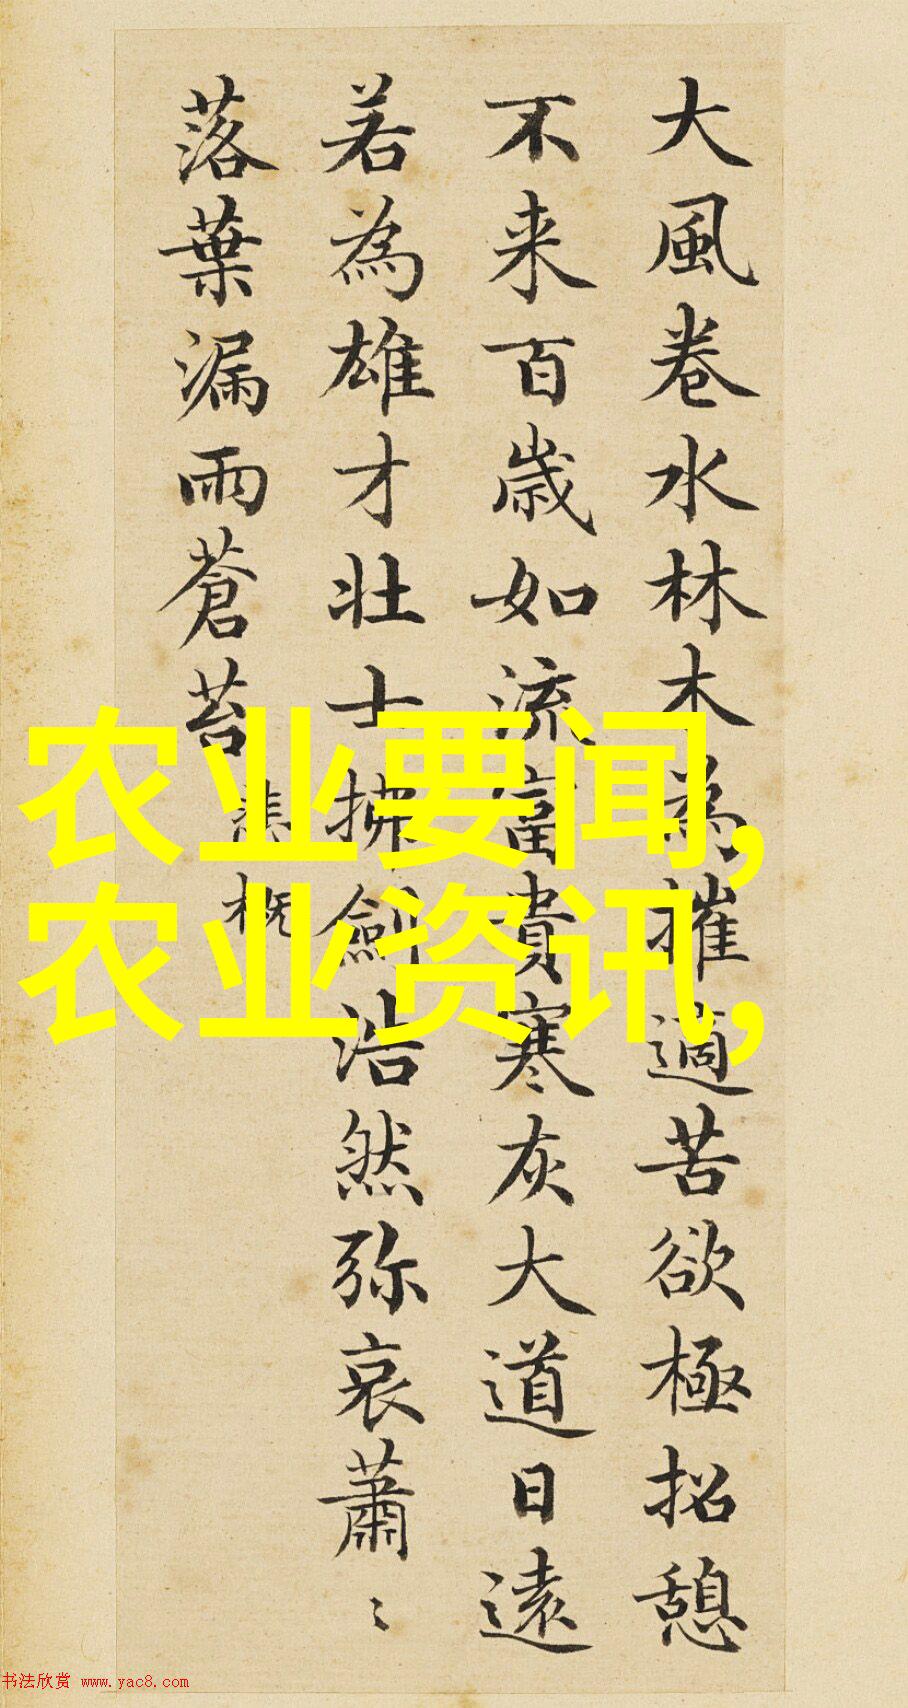 大風卷水林木為摧適苦欲極招憩
不来百歲如流富貴寒灰大道日遠
若為雄才壯士拂劍浩然弥哀蕭〻
落葉漏雨蒼苔
悲概
农业要闻,
农业资讯,
书法欣赏 www.yac8.com